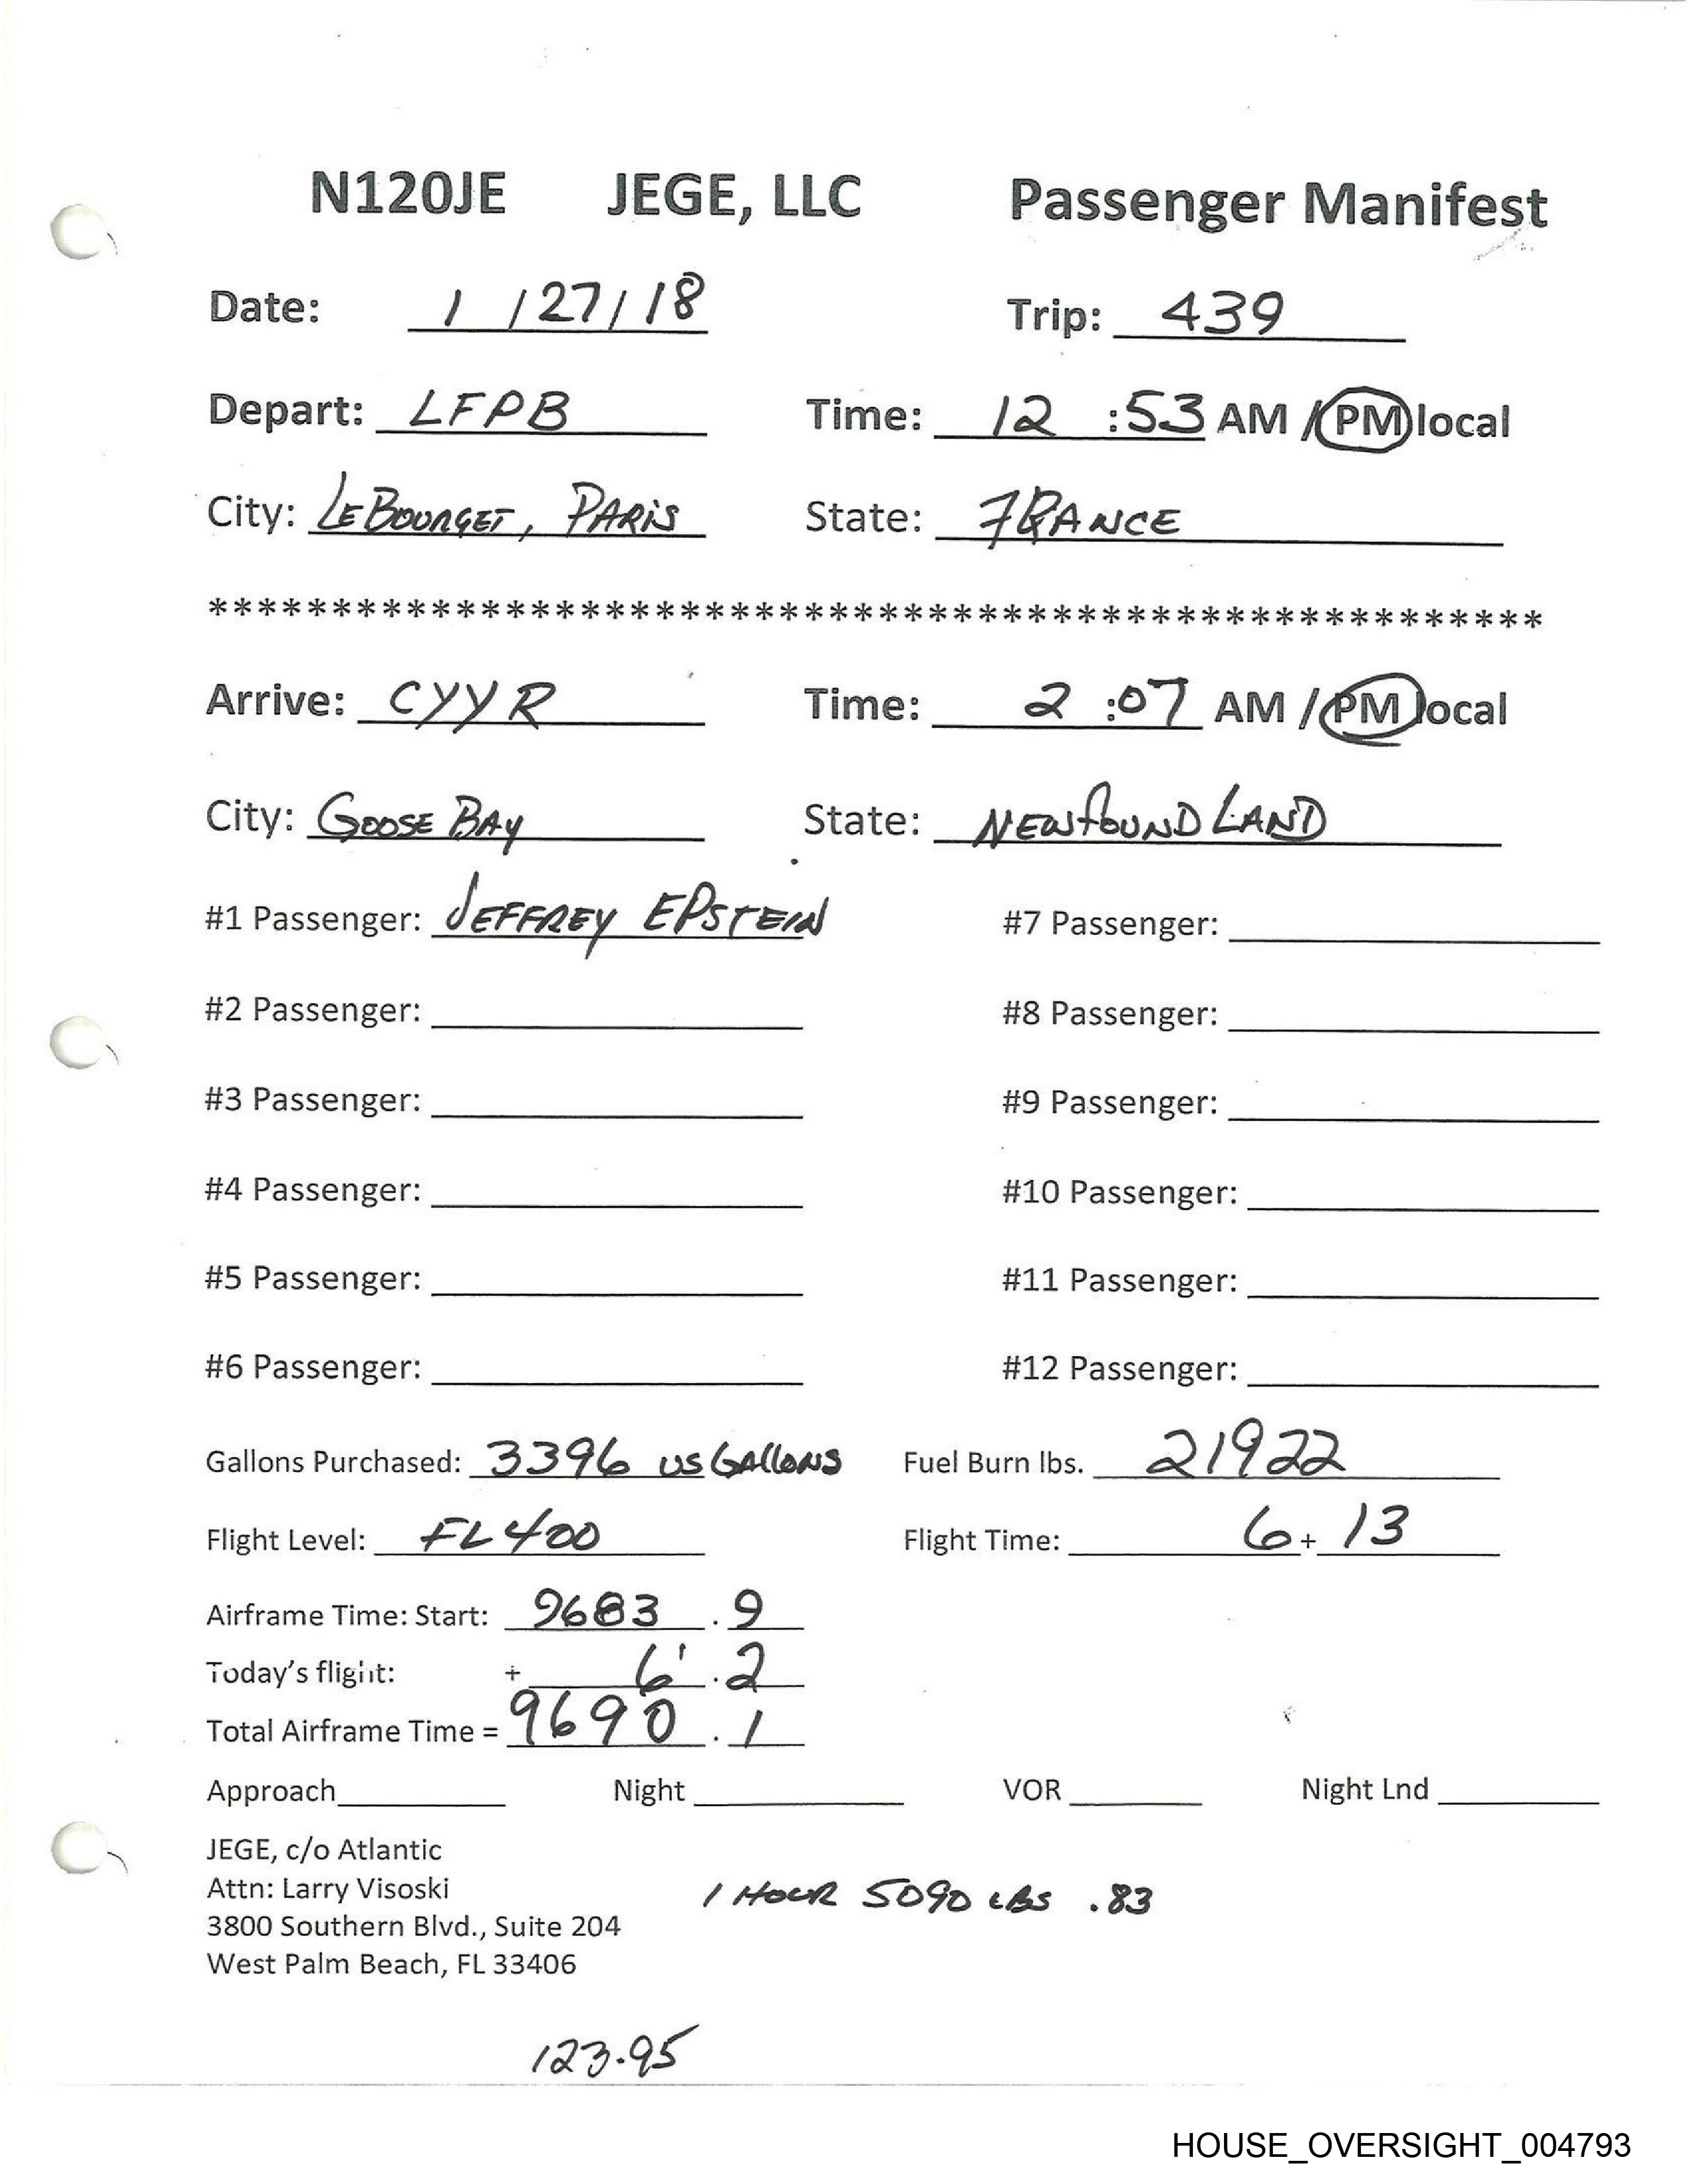 N120JE JEGE, LLC Passenger Manifest
Date: 1 / 27 / 18 Trip: 439
Depart: LFPB Time: 12 : 53 AM / PM local
City: LEBOURGET, PARIS State: FRANCE
*******************************************************
Arrive: CYYR Time: 2 : 07 AM / PM local
City: GOOSE BAY State: NEWFOUNDLAND
#1 Passenger: JEFFREY EPSTEIN #7 Passenger:
#2 Passenger: #8 Passenger:
#3 Passenger: #9 Passenger:
#4 Passenger: #10 Passenger:
#5 Passenger: #11 Passenger:
#6 Passenger: #12 Passenger:
Gallons Purchased: 3396 US GALLONS Fuel Burn lbs. 21922
Flight Level: FL400 Flight Time: 6 + 13
Airframe Time: Start: 9683 . 9
Today's flight: + 6 . 2
Total Airframe Time = 9690 . 1
Approach Night VOR Night Lnd
JEGE, c/o Atlantic
Attn: Larry Visoski
1 HOUR 5090 LBS .83
3800 Southern Blvd., Suite 204
West Palm Beach, FL 33406
123.95
HOUSE_OVERSIGHT_004793